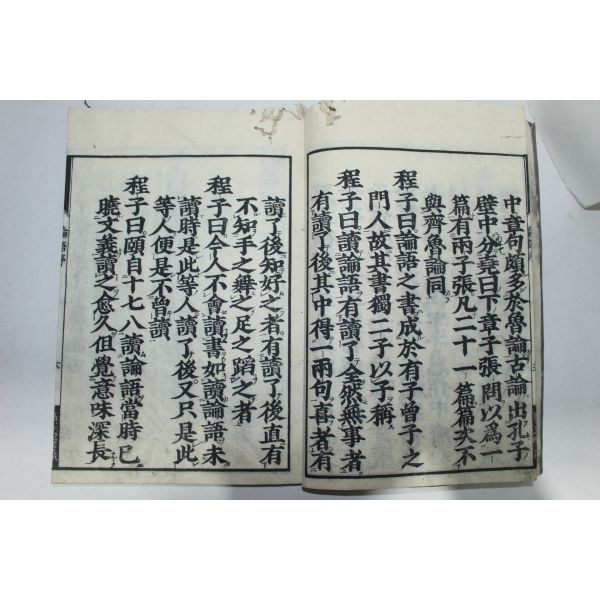 中章句頗多於魯論古論出孔子
壁中分堯曰下章子張問以爲一
篇有兩子張凡二十一篇篇次不
與齊魯論同
程子曰論語之書成於有子曾子之
門人故其書獨二子以子稱
程子曰讀論語有讀了全然無事者
有讀了後其中得一兩句喜者有
讀了後知好之者有讀了後直有
不知手之舞之足之蹈之者
程子曰今人不會讀書如讀論語未
讀時是此等人讀了後又只是此
等人便是不曾讀
程子曰頤自十七八讀論語當時已
曉文義讀之愈久但覺意味深長
論語序